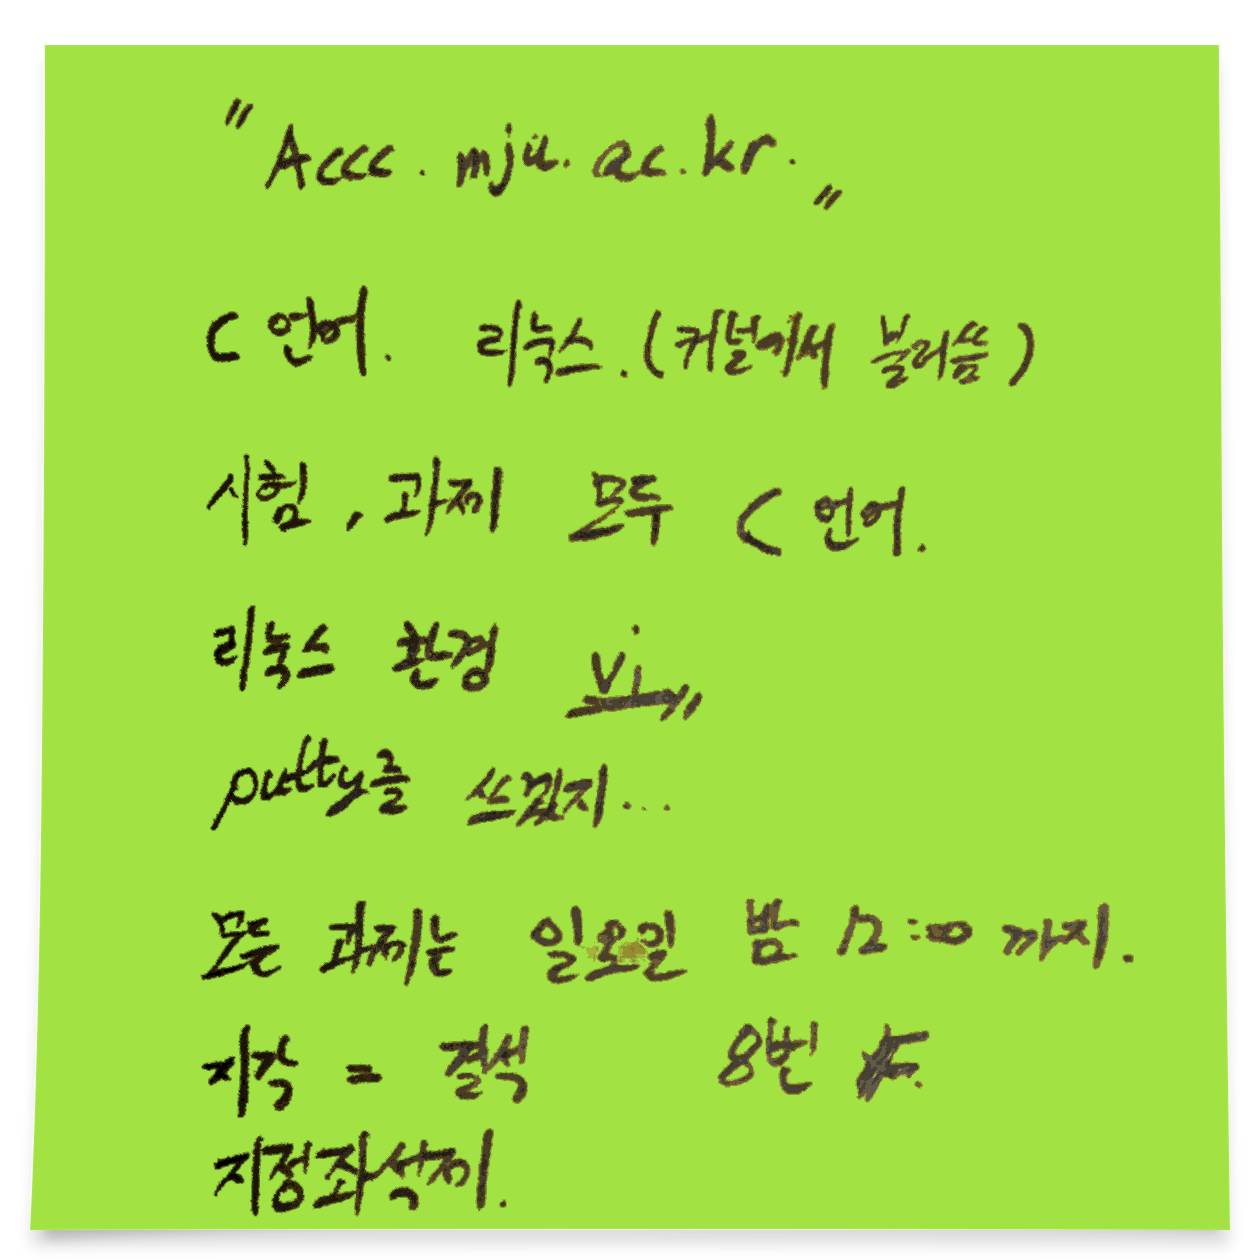 "Accc.mju.ac.kr."
C 언어. 리눅스.(커널에서 불러씀)
시험, 과제 모두 C 언어.
리눅스 환경 vi
putty를 쓰겠지...
모든 과제는 일요일 밤 12:00 까지.
지각 = 결석 8번
지정좌석제.